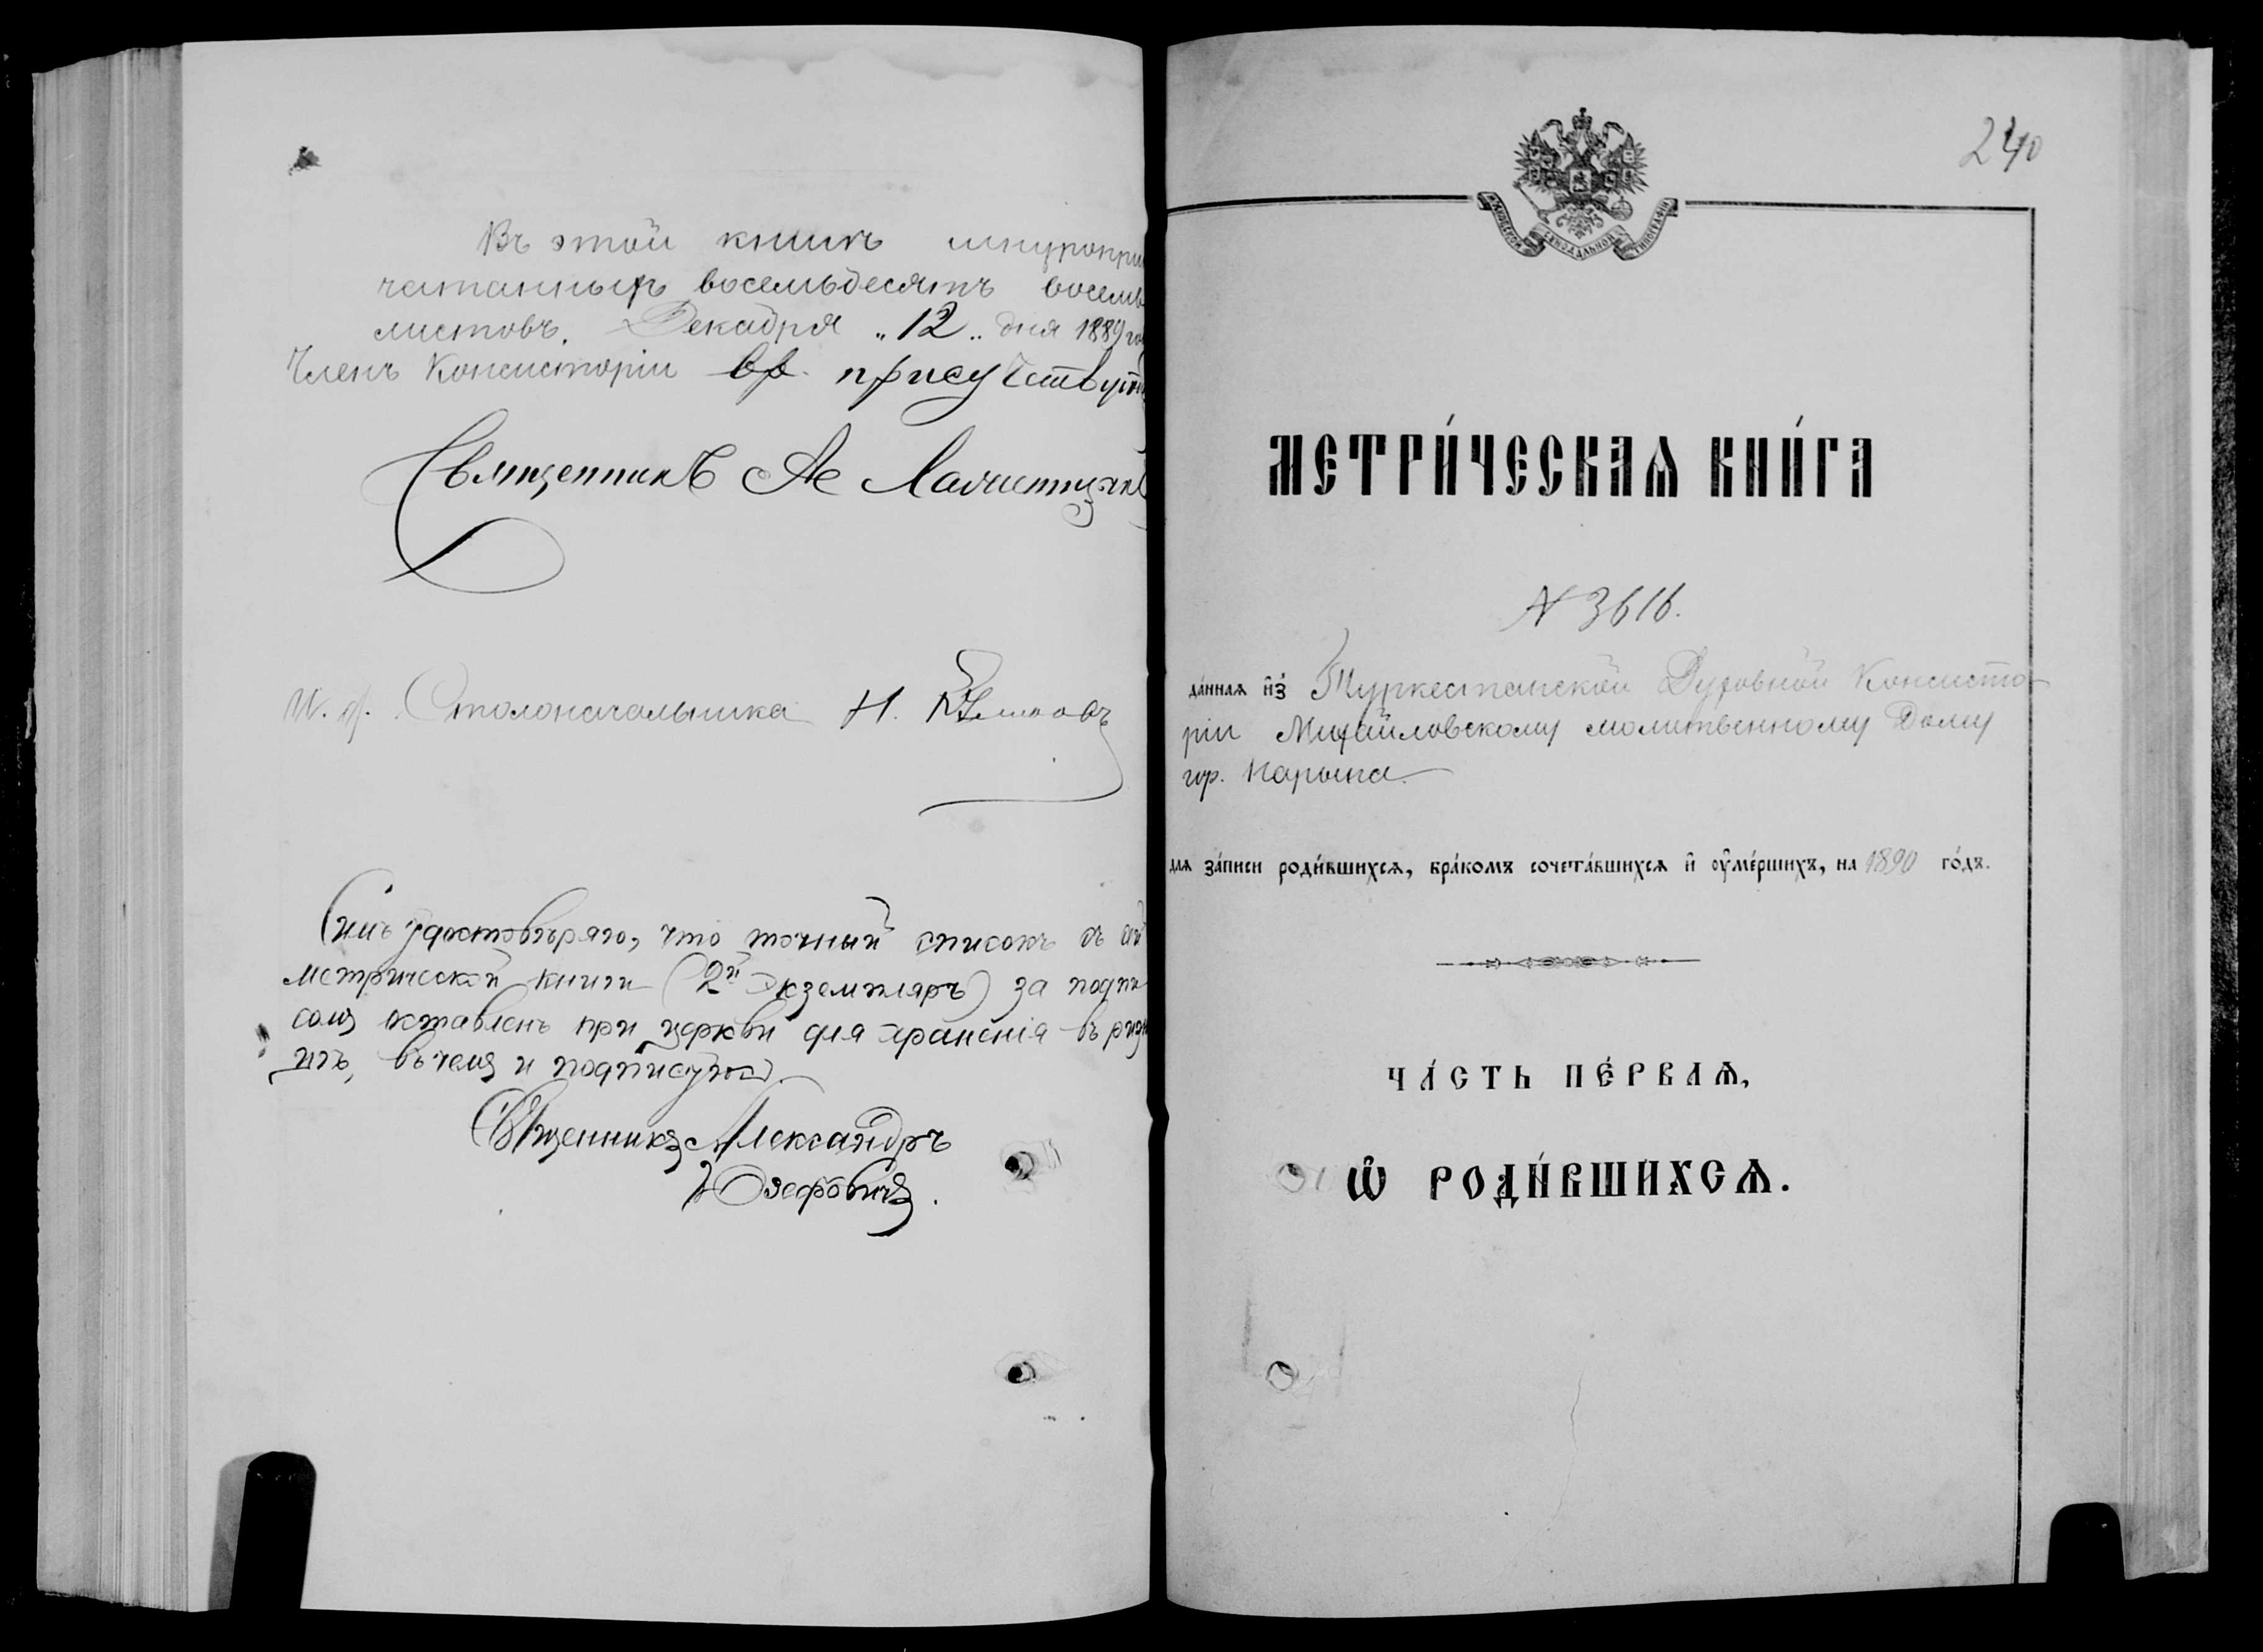 Въ этой книгѣ шнуропри
чатанныхъ восемьдесятъ восемь
листовъ. Декабря „12„ дня 1889 го
Членъ Консисторіи вр. присутствую
Священникъ Ал.
И. д. Столоначальника Н.
Симъ удостовѣряю, что точный списокъ съ сей
метрической книги (2й экземпляръ) за подпи
сомъ оставленъ при церкви для храненія въ риз
цѣ, въ чемъ и подписуюсь.
Священникъ Александръ
Юзефовичъ.
240
МОСКОВСКОЙ СѴНОДАЛЬНОЙ ТИПОГРАФІИ
МЕТРИ́ЧЕСКАѦ КНИ́ГА
№ 3616.
да́ннаѧ и҆з̾ Туркестанской Духовной Консисто-
ріи Михайловскому молитвенному Дому
гор. Нарына.
длѧ за́писи роди́вшихсѧ, бра́комъ сочета́вшихсѧ и҆ ᲂу҆ме́ршихъ, на 1890 го́дъ.
ЧА́СТЬ ПЕ́РВАѦ,
Ѽ РОДИ́ВШИХСѦ.